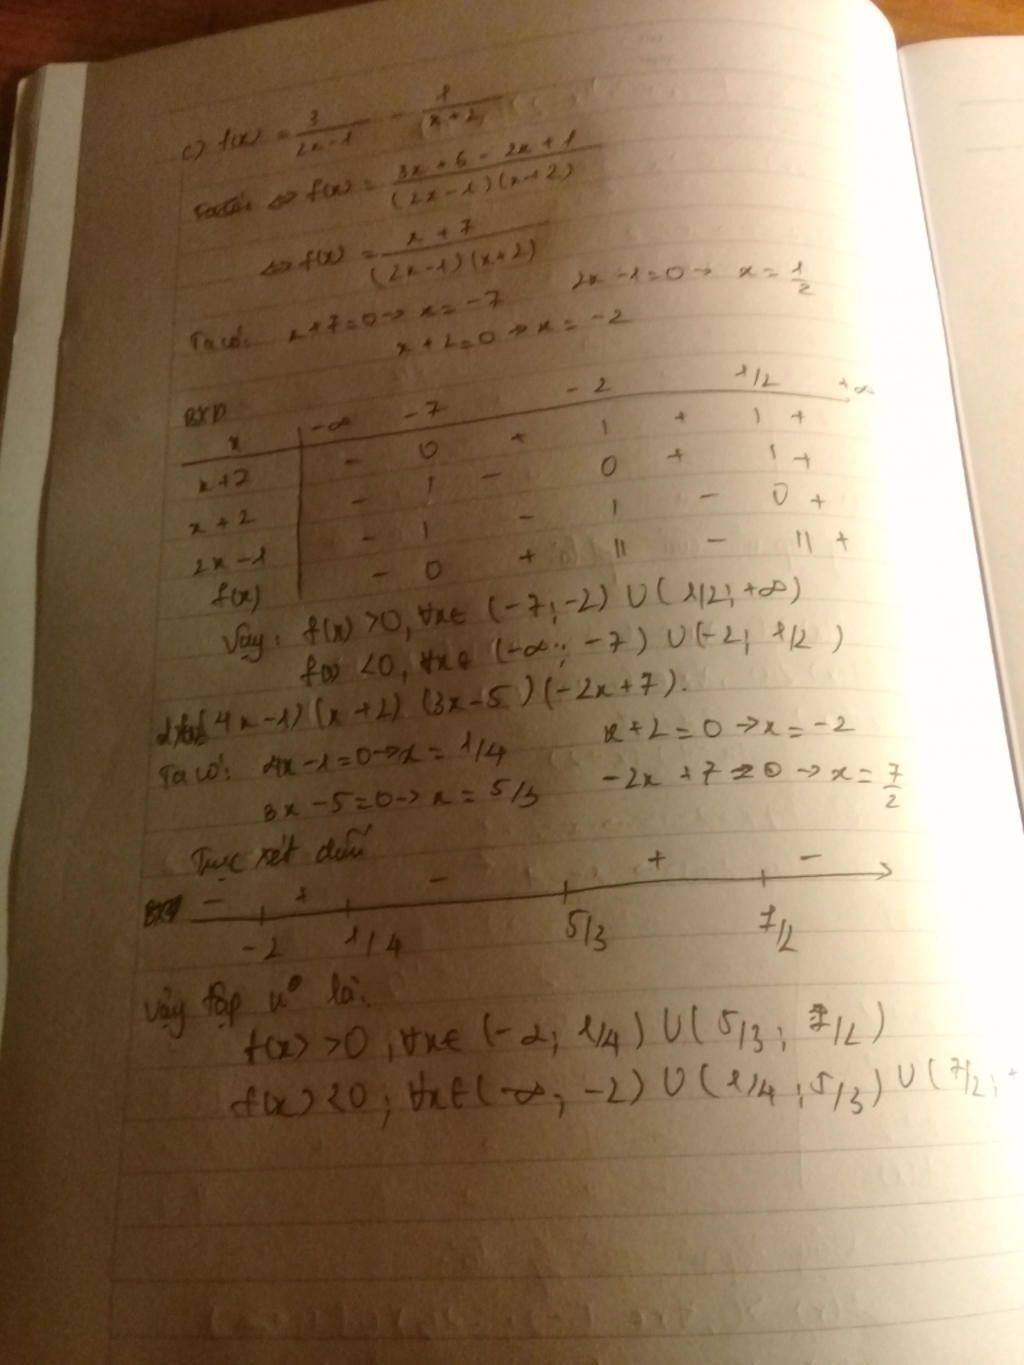 c) f(x) = 3/(2x-1) - 1/(x+2)
Ta có: ⇔ f(x) = (3x + 6 - 2x + 1)/((2x-1)(x+2))
⇔ f(x) = (x + 7)/((2x-1)(x+2))
Ta có: x + 7 = 0 → x = -7 2x - 1 = 0 → x = 1/2
x + 2 = 0 → x = -2
BXD
x -∞ -7 -2 1/2 +∞
x+7 - 0 + | + | +
x + 2 - | - 0 + | +
2x-1 - | - | - 0 +
f(x) - 0 + || - || +
Vậy: f(x) > 0, ∀x∈ (-7; -2) ∪ (1/2; +∞)
f(x) < 0, ∀x∈ (-∞; -7) ∪ (-2; 1/2)
(4x-1)(x+2)(3x-5)(-2x+7).
Ta có: 4x-1=0 → x = 1/4 x+2 = 0 → x = -2
3x - 5 = 0 → x = 5/3 -2x + 7 = 0 → x = 7/2
Trục xét dấu
- + - + -
-2 1/4 5/3 7/2
Vậy tập n° là:
f(x) > 0, ∀x∈ (-2; 1/4) ∪ (5/3; 7/2)
f(x) < 0; ∀x∈ (-∞; -2) ∪ (1/4; 5/3) ∪ (7/2; +